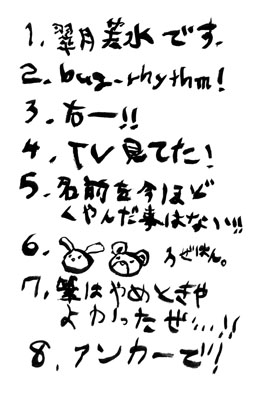 1. 翠月若水です.
2. bug-rhythm!
3. 右一!!
4. TV見てた!
5. 名前を今ほど
くやんだ事はない!!
6. ろぜはん。
7. 筆はやめときゃ
よかったぜ…!!
8. アンカーで!